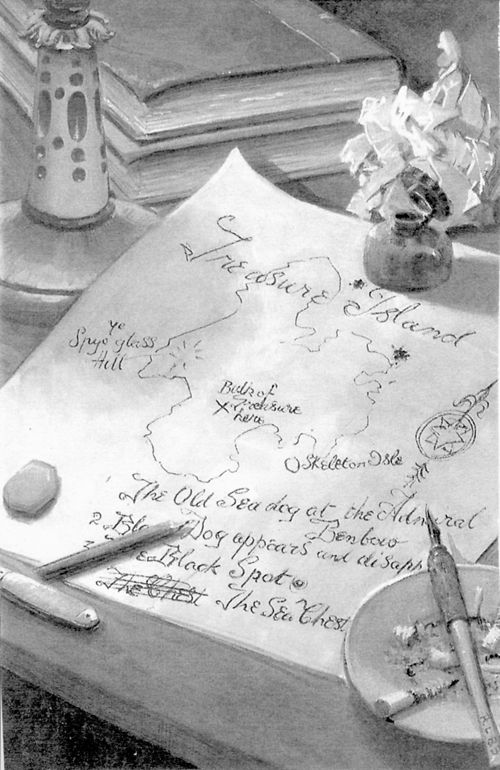 Treasure Island
ye
Spye glass
Hill
Bulk of
treasure
X here
Skeleton Isle
1 The Old Sea dog at the Admiral
Benbow
2 Bla Dog appears and disapp
e Black Spot
The Chest The Sea Chest